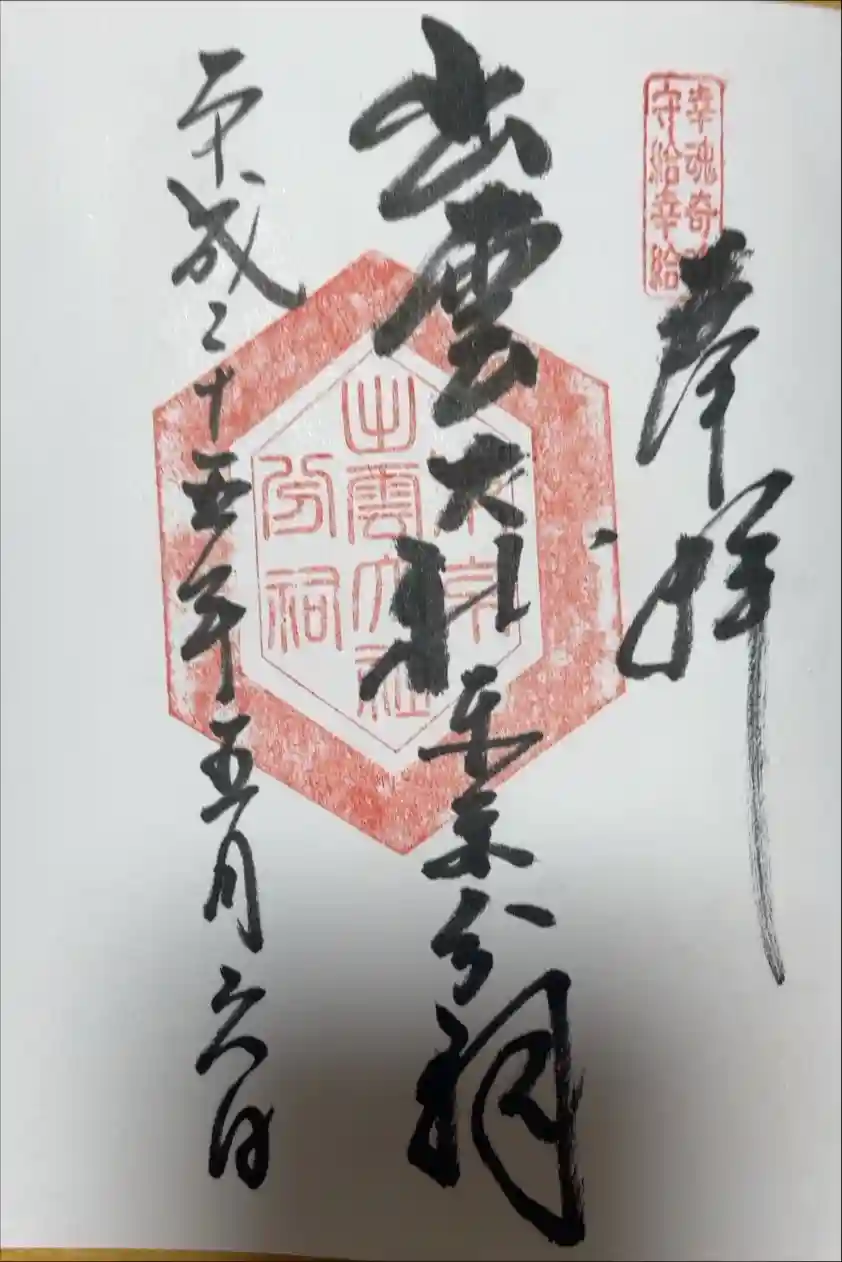 幸魂奇魂
守給幸給
奉拝
出雲大社東京分祠
東京
出雲大社
分祠
平成二十五年五月六日